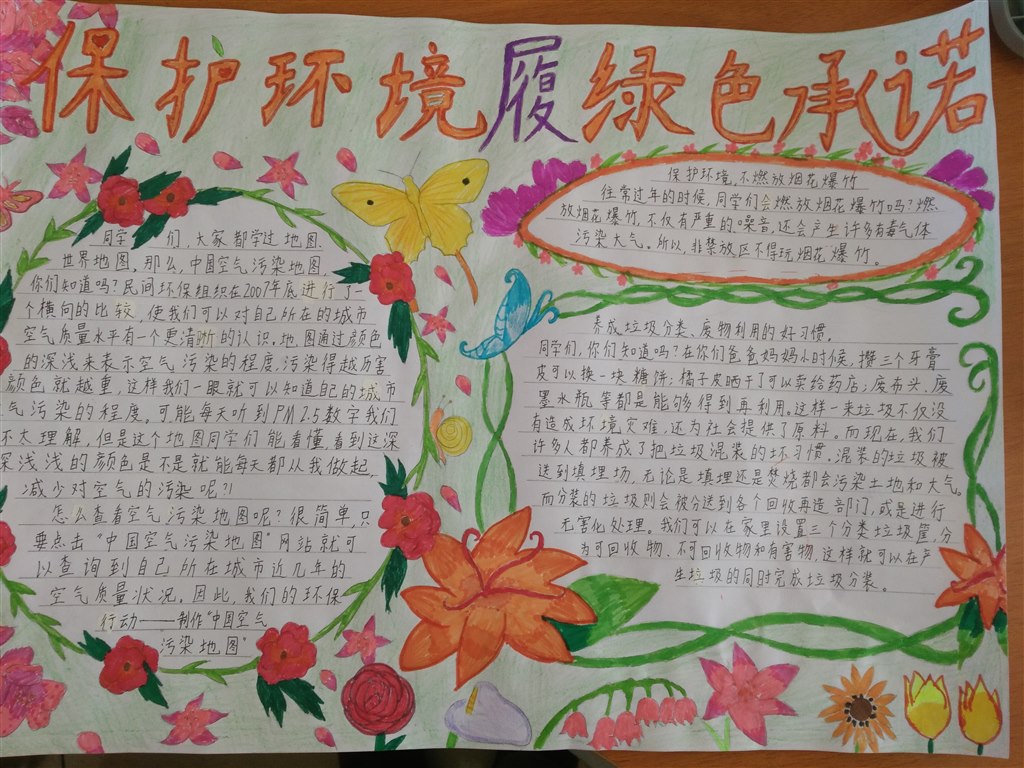 保护环境履绿色承诺
同学们,大家都学过地图
世界地图。那么,中国空气污染地图,
你们知道吗?民间环保组织在2007年底进行了一
个横向的比较,使我们可以对自己所在的城市
空气质量水平有一个更清晰的认识。地图通过颜色
的深浅来表示空气污染的程度,污染得越厉害
颜色就越重,这样我们一眼就可以知道自己的城市
气污染的程度。可能每天听到PM2.5数字我们
不太理解,但是这个地图同学们能看懂,看到这深
深浅浅的颜色是不是就能每天都从我做起,
减少对空气的污染呢?!
怎么查看空气污染地图呢?很简单,只
要点击“中国空气污染地图”网站就可
以查询到自己所在城市近几年的
空气质量状况。因此,我们的环保
行动——制作“中国空气
污染地图”
保护环境,不燃放烟花爆竹
往常过年的时候,同学们会燃放烟花爆竹吗?燃
放烟花爆竹,不仅有严重的噪音,还会产生许多有毒气体
污染大气。所以,非禁放区不得玩烟花爆竹。
养成垃圾分类、废物利用的好习惯。
同学们,你们知道吗?在你们爸爸妈妈小时候,攒三个牙膏
皮可以换一块糖饼;橘子皮晒干了可以卖给药店;废布头、废
墨水瓶等都是能够得到再利用。这样一来垃圾不仅没
有造成环境灾难,还为社会提供了原料。而现在,我们
许多人都养成了把垃圾混装的坏习惯。混装的垃圾被
送到填埋场,无论是填埋还是焚烧都会污染土地和大气。
而分装的垃圾则会被分送到各个回收再造部门,或是进行
无害化处理。我们可以在家里设置三个分类垃圾筐,分
为可回收物、不可回收物和有害物,这样就可以在产
生垃圾的同时完成垃圾分装。